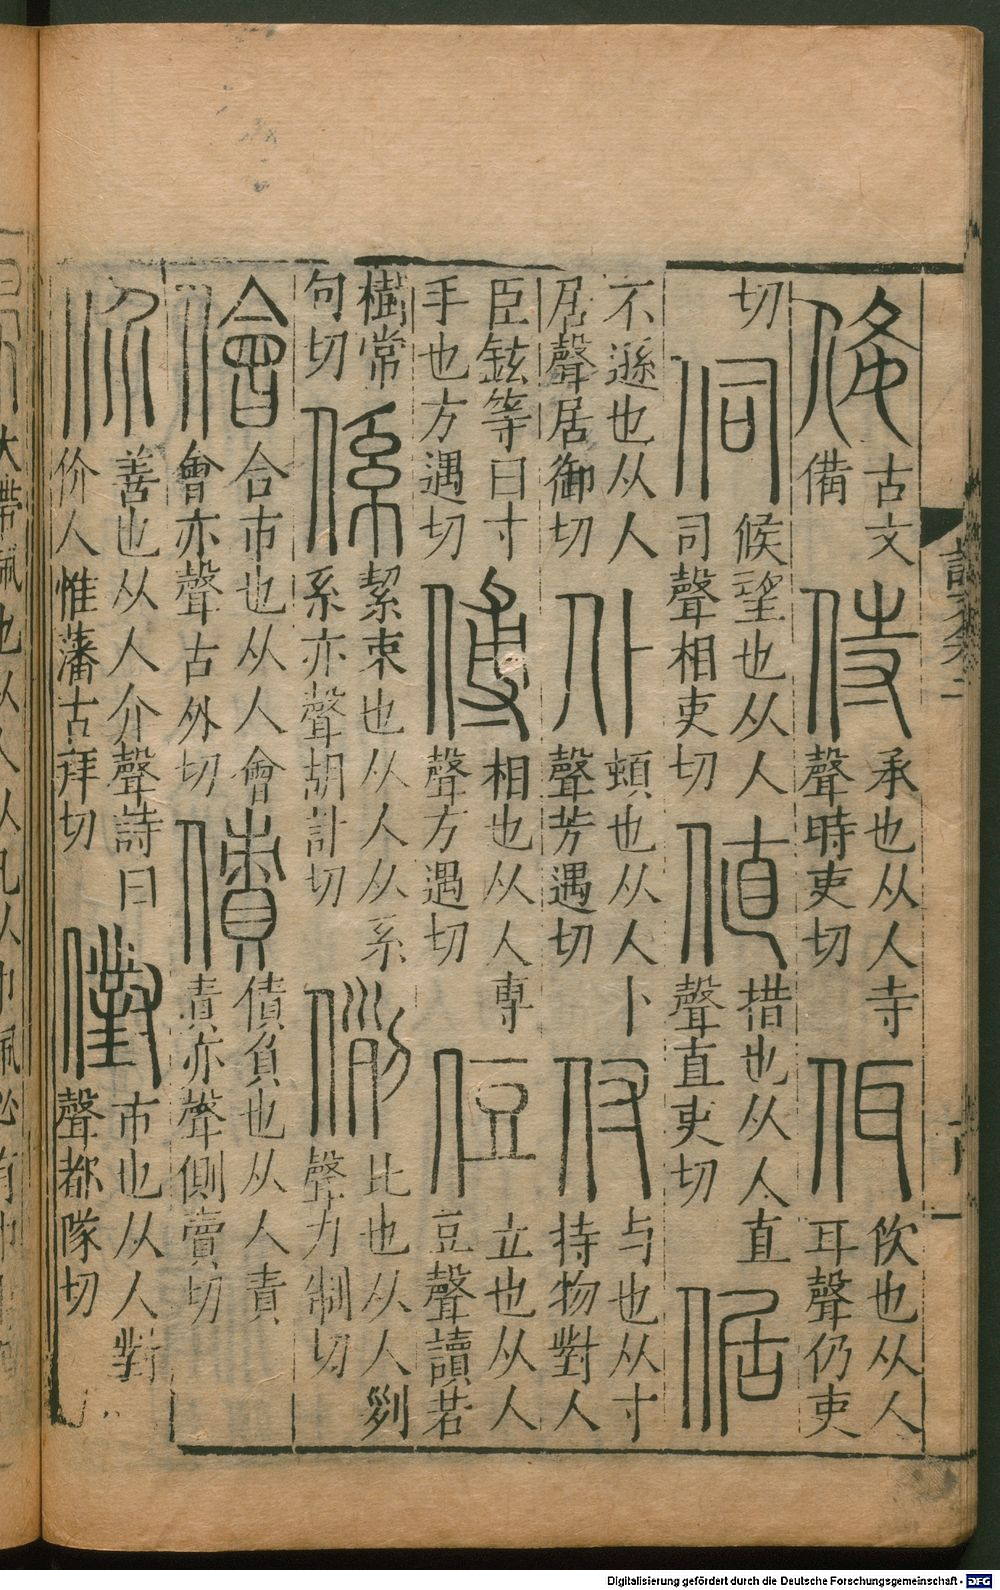 俻 古文備 侍 承也从人寺聲時吏切 佴 佽也从人耳聲仍吏切
切 伺 候望也从人司聲相吏切 値 措也从人直聲直吏切 倨
不遜也从人居聲居御切 仆 頓也从人卜聲芳遇切 付 与也从寸持物對人
臣鉉等曰寸手也方遇切 傅 相也从人専聲方遇切 侸 立也从人豆聲讀若
樹常句切 係 絜束也从人从系系亦聲胡計切 例 比也从人列聲力制切
儈 合市也从人會會亦聲古外切 債 債負也从人責責亦聲側賣切
价 善也从人介聲詩曰价人惟藩古拜切 㒛 市也从人對聲都隊切
大帶佩也从人从凡从巾佩必有巾
Digitalisierung gefördert durch die Deutsche Forschungsgemeinschaft - DFG